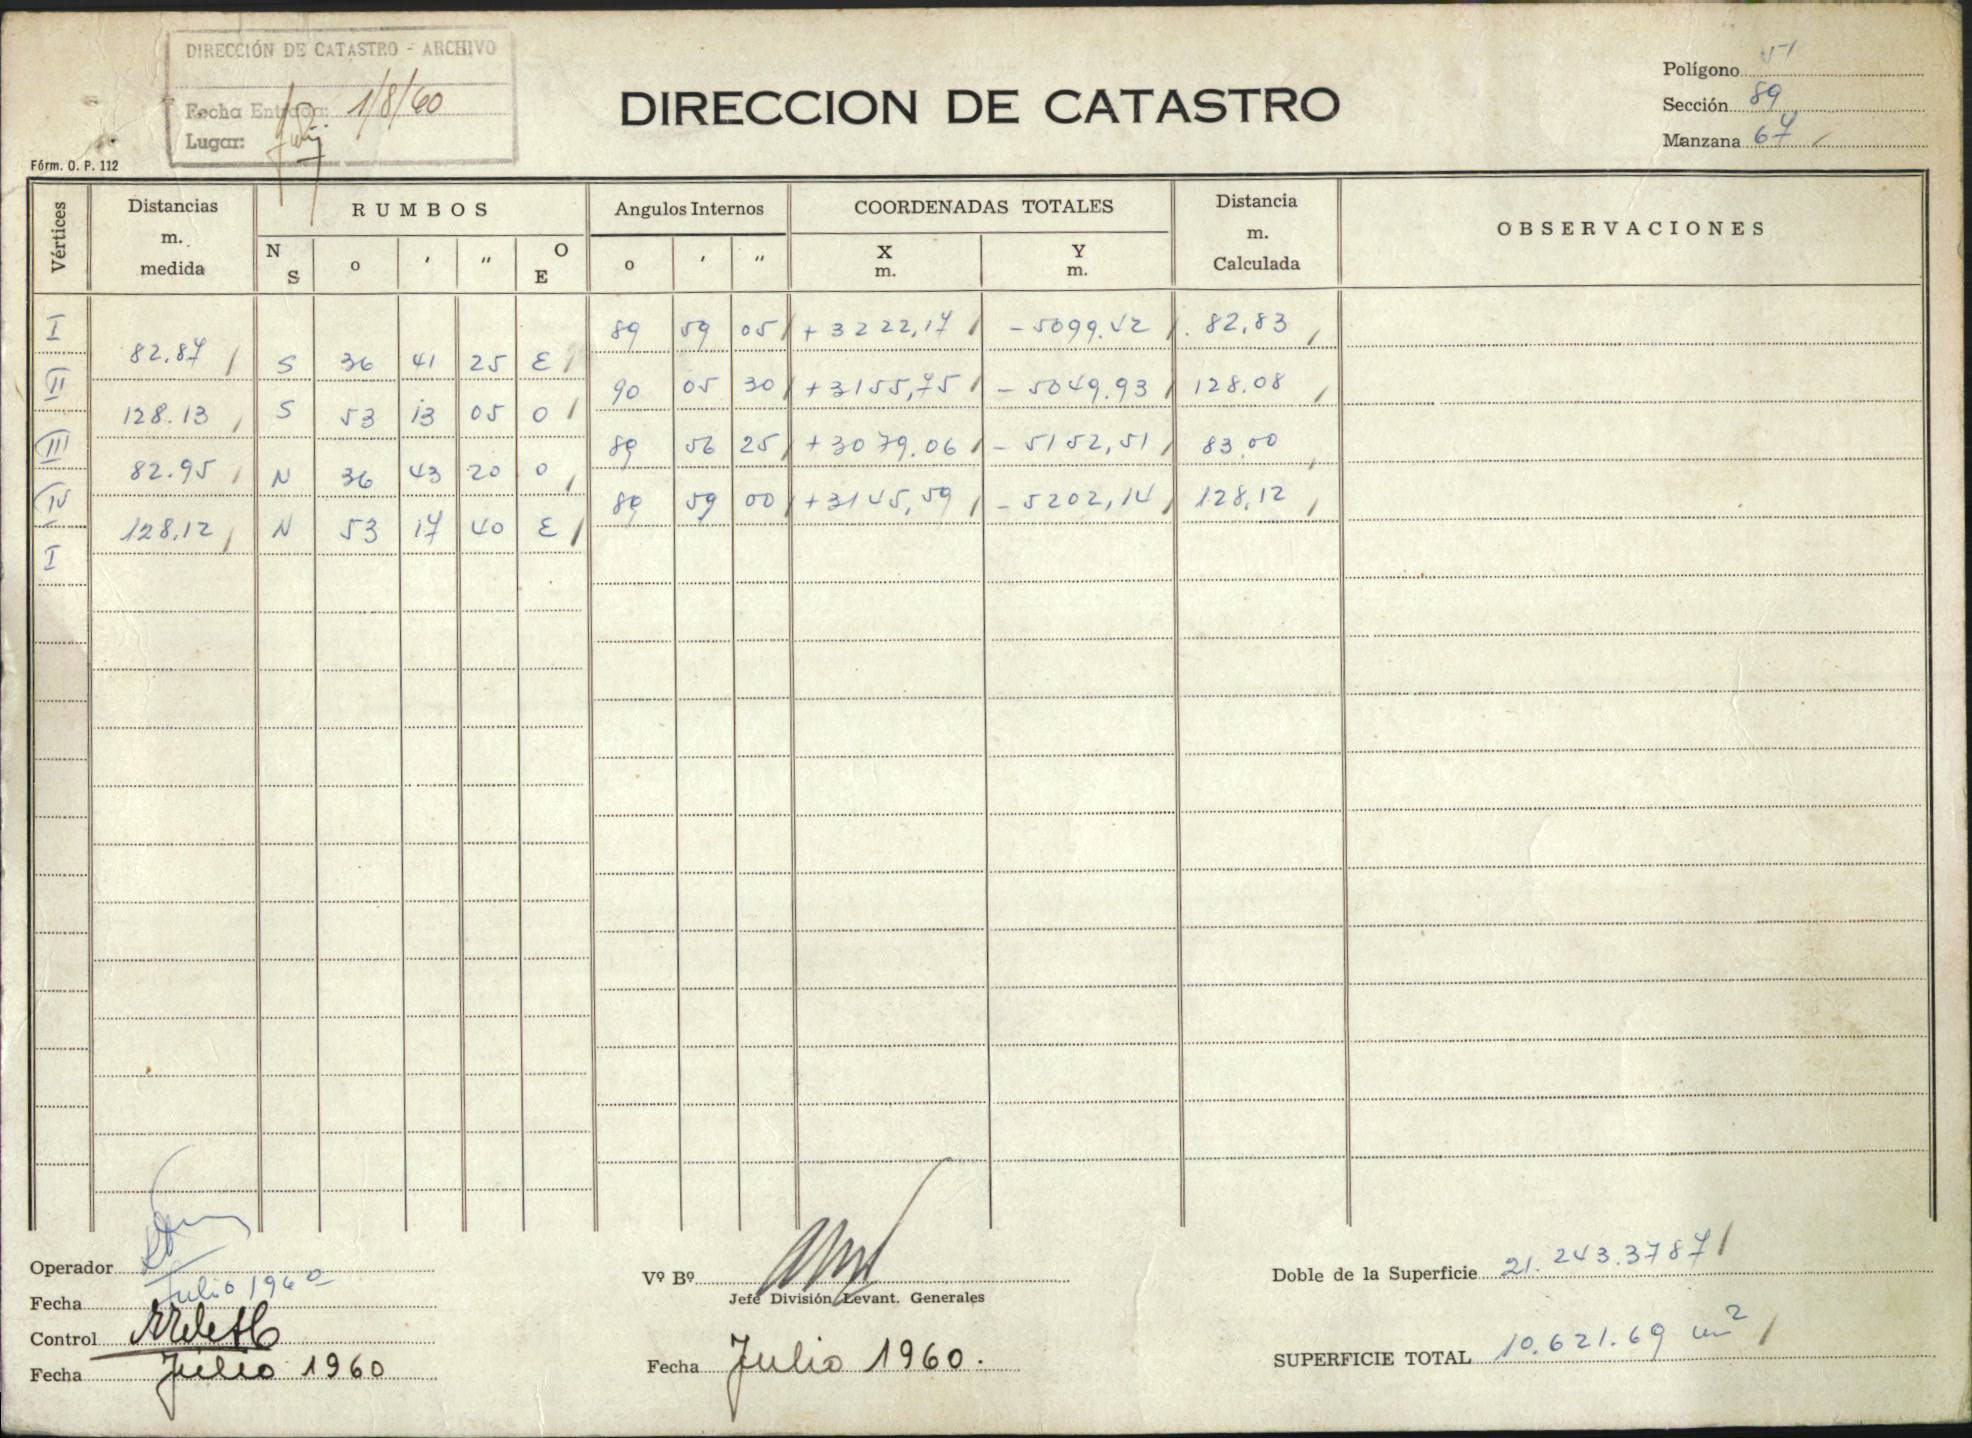 DIRECCIÓN DE CATASTRO - ARCHIVO
Fecha Entrada: 1/8/60
Lugar:
Fórm. O. P. 112
DIRECCION DE CATASTRO
Polígono 51
Sección 89
Manzana 67
Vértices Distancias m. medida RUMBOS Angulos Internos COORDENADAS TOTALES Distancia m. Calculada OBSERVACIONES
N S o ' " O E o ' " X m. Y m.
I 89 59 05 +3222,17 -5099.42 82,83
82.87 S 36 41 25 E
II 90 05 30 +3155,75 -5049.93 128.08
128.13 S 53 13 05 O
III 89 56 25 +3079.06 -5152,51 83,00
82.95 N 36 43 20 O
IV 89 59 00 +3145,59 -5202,14 128,12
128,12 N 53 17 40 E
I
Operador
Fecha Julio 1960
Control
Fecha Julio 1960
Vº Bº
Jefe División Levant. Generales
Fecha Julio 1960.
Doble de la Superficie 21.243.3787
SUPERFICIE TOTAL 10.621.69 m2